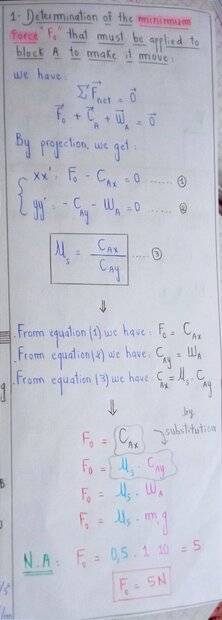 1- Determination of the minimum
Force "F₀" that must be applied to
block A to make it move:
we have:
ΣF⃗net = 0⃗
F⃗₀ + C⃗A + W⃗A = 0⃗
By projection, we get:
xx': F₀ - CAx = 0 ...... ①
yy': - CAy - WA = 0 ...... ②
μs = CAx / CAy ...... ③
⇓
.From equation (1) we have: F₀ = CAx
.From equation (2) we have: CAy = WA
.From equation (3) we have CAx = μs . CAy
⇓
by
substitution
F₀ = CAx
F₀ = μs . CAy
F₀ = μs . WA
F₀ = μs . m.g
N.A: F₀ = 0,5 . 1 10 = 5
F₀ = 5N